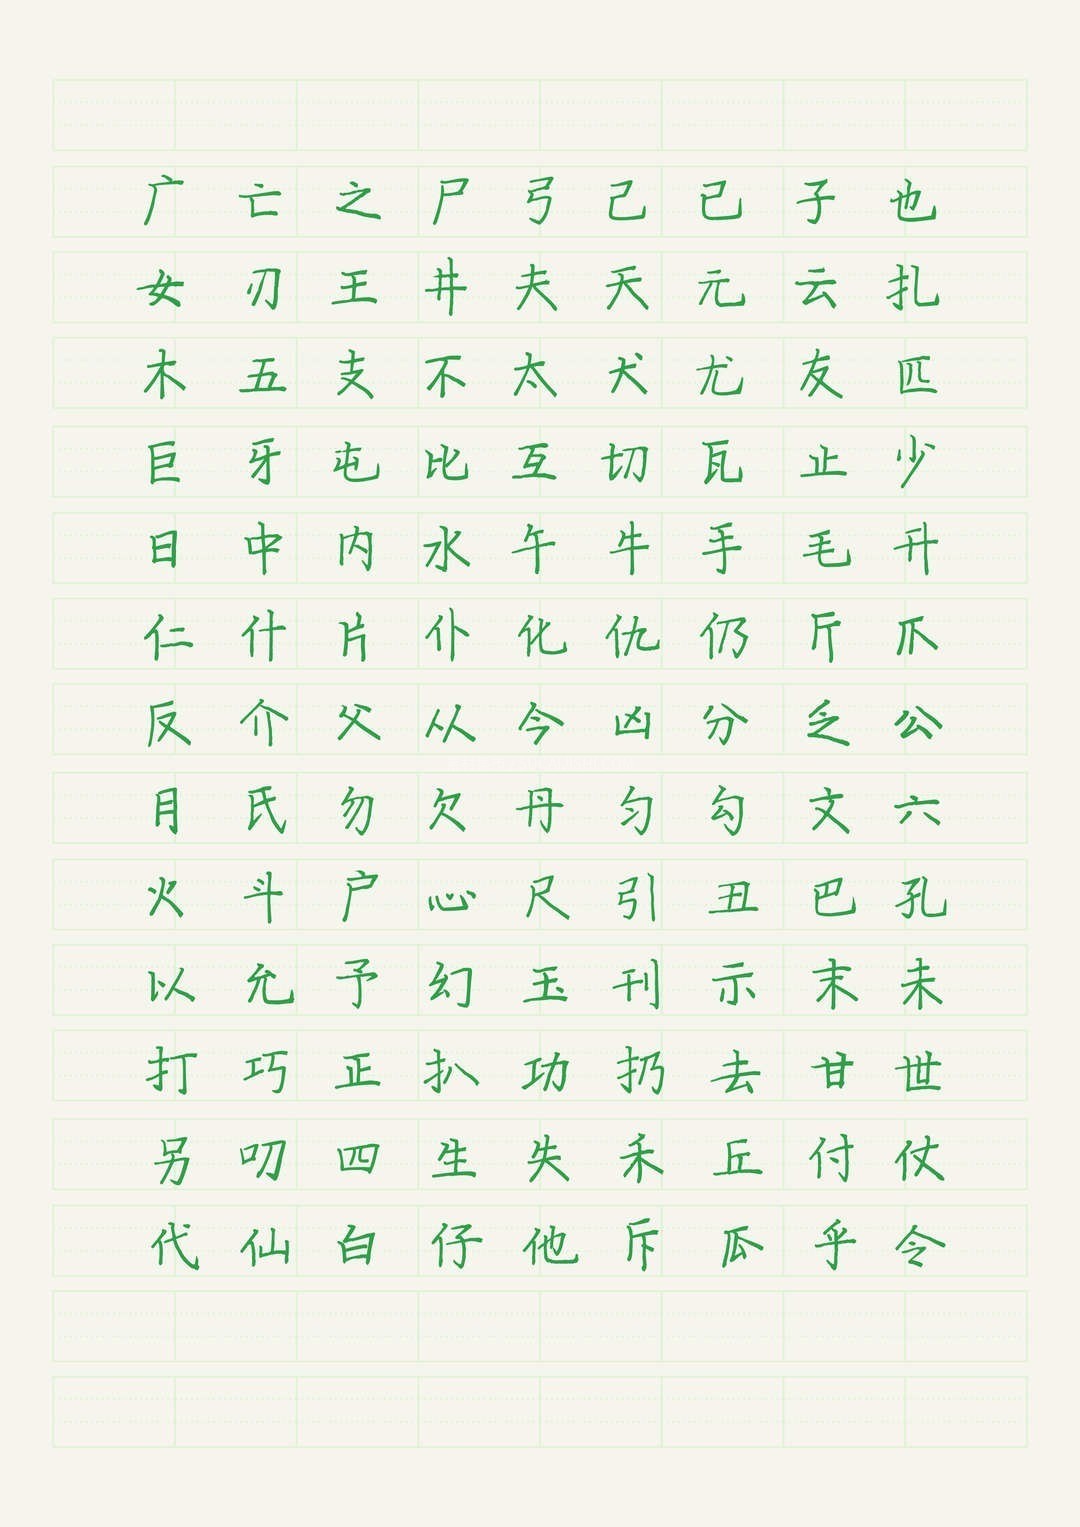 广 亡 之 尸 弓 己 已 子 也
女 刃 王 井 夫 天 元 云 扎
木 五 支 不 太 犬 尤 友 匹
巨 牙 屯 比 互 切 瓦 止 少
日 中 内 水 午 牛 手 毛 升
仁 什 片 仆 化 仇 仍 斤 爪
反 介 父 从 今 凶 分 乏 公
月 氏 勿 欠 丹 匀 勾 文 六
火 斗 户 心 尺 引 丑 巴 孔
以 允 予 幻 玉 刊 示 末 未
打 巧 正 扒 功 扔 去 甘 世
另 叨 四 生 失 禾 丘 付 仗
代 仙 白 仔 他 斥 瓜 乎 令